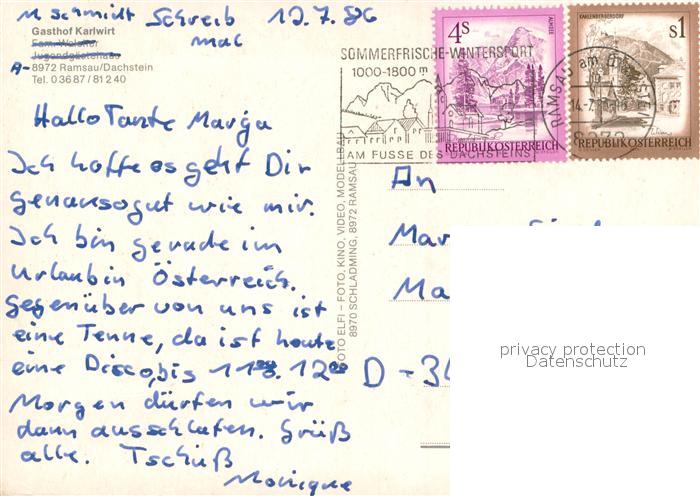 M Schmidt Schreib 12.7.86
mal
Gasthof Karlwirt
Jugendgästehaus
A-8972 Ramsau/Dachstein
Tel. 03687/81240
Hallo Tante Marga
Ich hoffe es geht Dir
genausogut wie mir.
Ich bin gerade im
Urlaub in Österreich.
Gegenüber von uns ist
eine Tenne, da ist heute
eine Disco, bis 11 00. 12 00
Morgen dürfen wir
dann ausschlafen. Grüß
alle. Tschüß
Monique
FOTO ELFI – FOTO, KINO, VIDEO, MODELLBAU
8970 SCHLADMING, 8972 RAMSAU
SOMMERFRISCHE-WINTERSPORT
1000-1800 m
AM FUSSE DES DACHSTEINS
4S
ALMSEE
REPUBLIK ÖSTERREICH
KAHLENBERGERDORF
S1
REPUBLIK ÖSTERREICH
RAMSAU am
8972
An
Mar
Ma
D-
privacy protection
Datenschutz